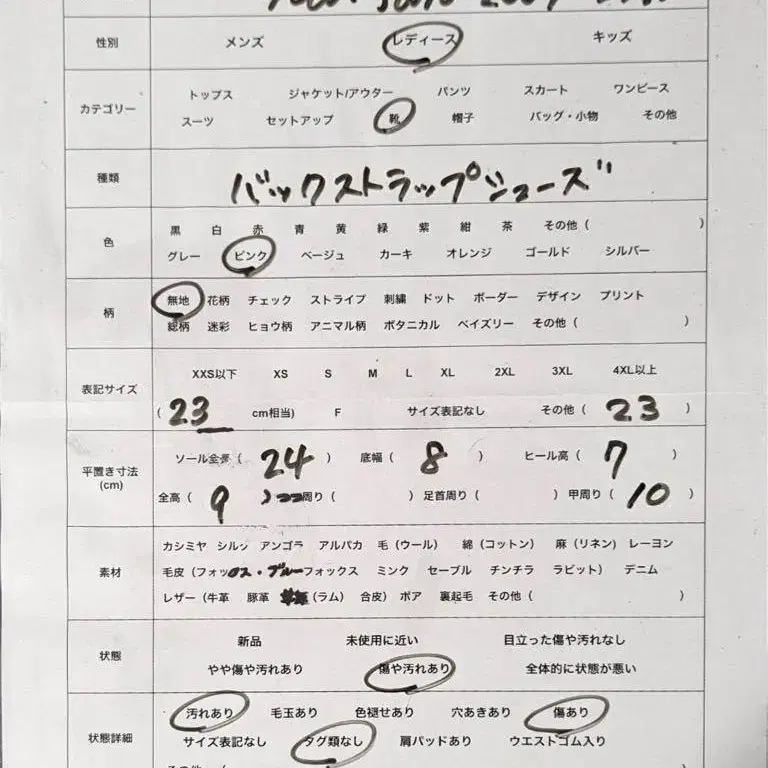 性別 メンズ レディース キッズ
カテゴリー
トップス ジャケット/アウター パンツ スカート ワンピース
スーツ セットアップ 靴 帽子 バッグ・小物 その他
種類 バックストラップシューズ
色
黒 白 赤 青 黄 緑 紫 紺 茶 その他 ( )
グレー ピンク ベージュ カーキ オレンジ ゴールド シルバー
柄
無地 花柄 チェック ストライプ 刺繍 ドット ボーダー デザイン プリント
総柄 迷彩 ヒョウ柄 アニマル柄 ボタニカル ペイズリー その他 ( )
表記サイズ
XXS以下 XS S M L XL 2XL 3XL 4XL以上
( 23 cm相当) F サイズ表記なし その他 ( 23 )
平置き寸法
(cm)
ソール全長 ( 24 ) 底幅 ( 8 ) ヒール高 ( 7 )
全高 ( 9 ) 周り ( ) 足首周り ( ) 甲周り ( 10 )
素材
カシミヤ シルク アンゴラ アルパカ 毛 (ウール) 綿 (コットン) 麻 (リネン) レーヨン
毛皮 (フォックス・ブルーフォックス ミンク セーブル チンチラ ラビット) デニム
レザー (牛革 豚革 (ラム) 合皮) ボア 裏起毛 その他 ( )
状態
新品 未使用に近い 目立った傷や汚れなし
やや傷や汚れあり 傷や汚れあり 全体的に状態が悪い
状態詳細
汚れあり 毛玉あり 色褪せあり 穴あきあり 傷あり
サイズ表記なし タグ類なし 肩パッドあり ウエストゴム入り